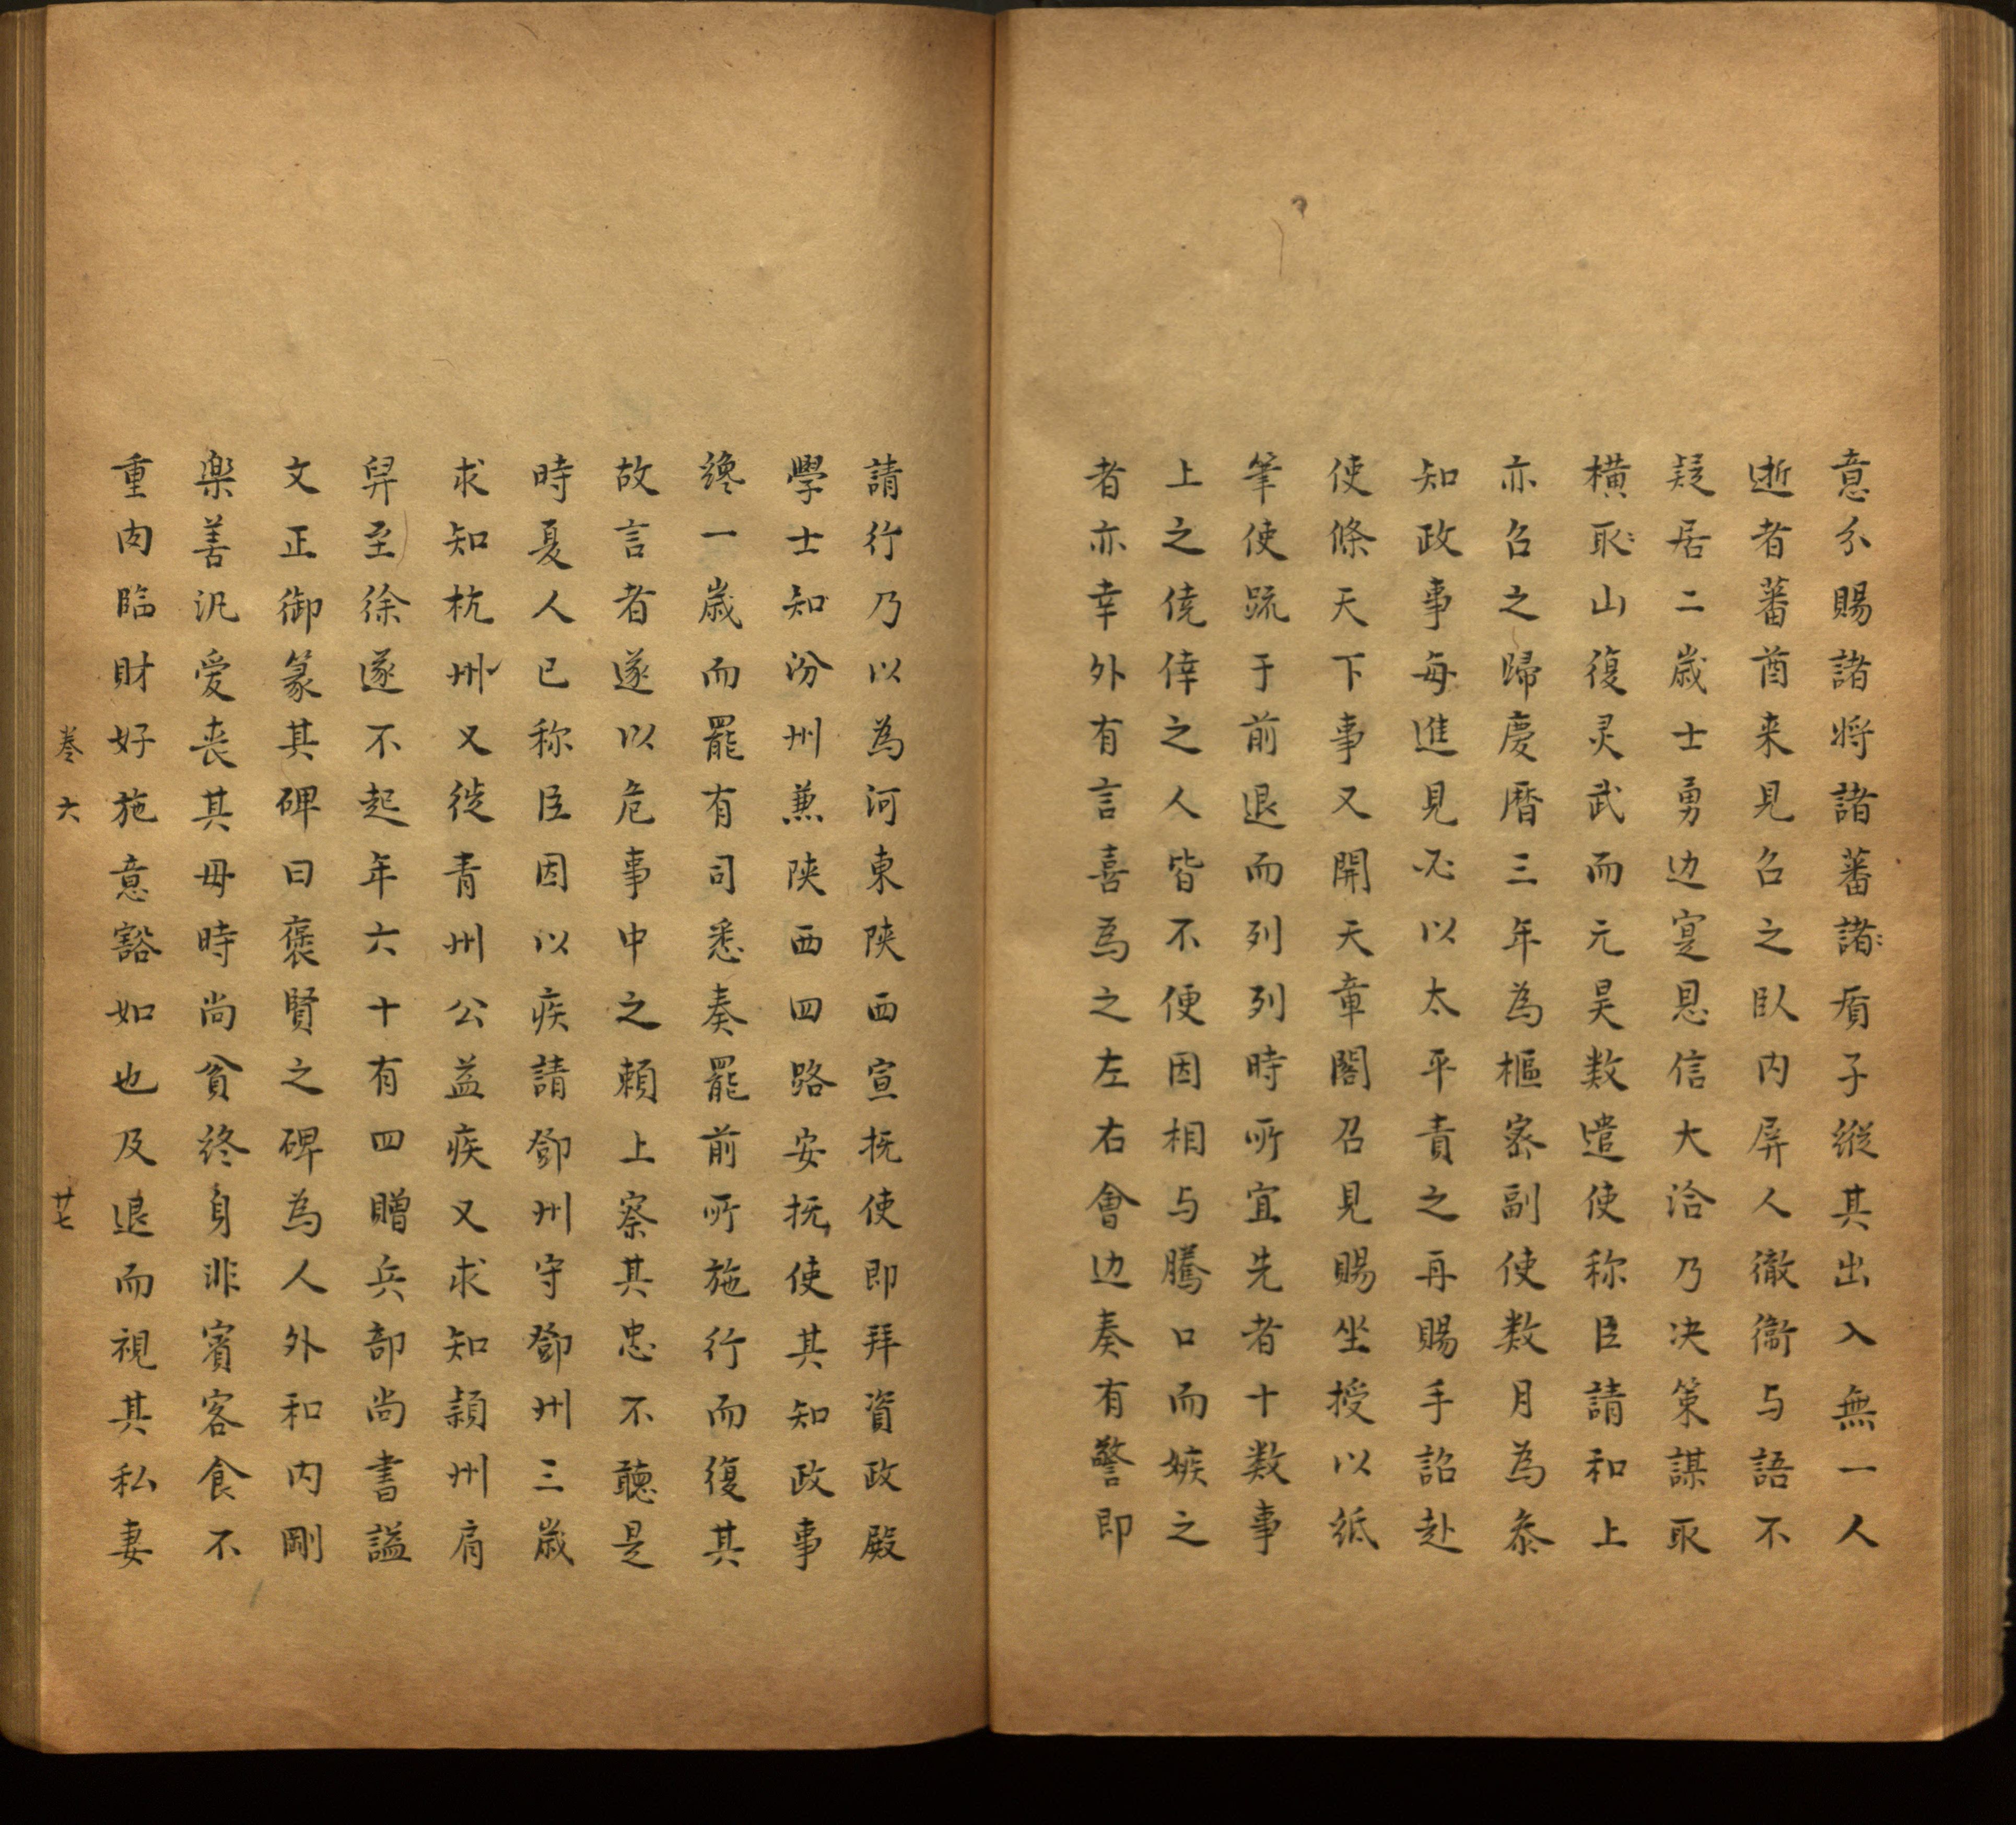 意分賜諸将諸蕃諸〻質子縱其出入無一人
逝者蕃酋来見召之臥内屏人徹衞与語不
疑居二歳士勇边寔恩信大洽乃决策謀取
横取〻山復灵武而元昊数遣使称臣請和上
亦召之歸慶曆三年為樞宻副使数月為叅
知政事每進見必以太平責之再賜手詔赴
使條天下事又開天章閣召見賜坐授以紙
筆使䟽于前退而列列時所宜先者十数事
上之僥倖之人皆不便因相与騰口而嫉之
者亦幸外有言喜為之左右會边奏有警即
請行乃以為河東陝西宣抚使即拜資政殿
學士知汾州兼陝西四路安抚使其知政事
纔一歳而罷有司悉奏罷前所施行而復其
故言者遂以危事中之頼上察其忠不聽是
時夏人已称臣因以疾請鄧州守鄧州三歳
求知杭州又徙青州公益疾又求知潁州肩
舁至徐遂不起年六十有四贈兵部尚書謚
文正御篆其碑曰褒賢之碑為人外和内剛
楽善汎爱丧其毋時尚貧終身非賓客食不
重肉臨財好施意豁如也及退而視其私妻
卷六 廿七